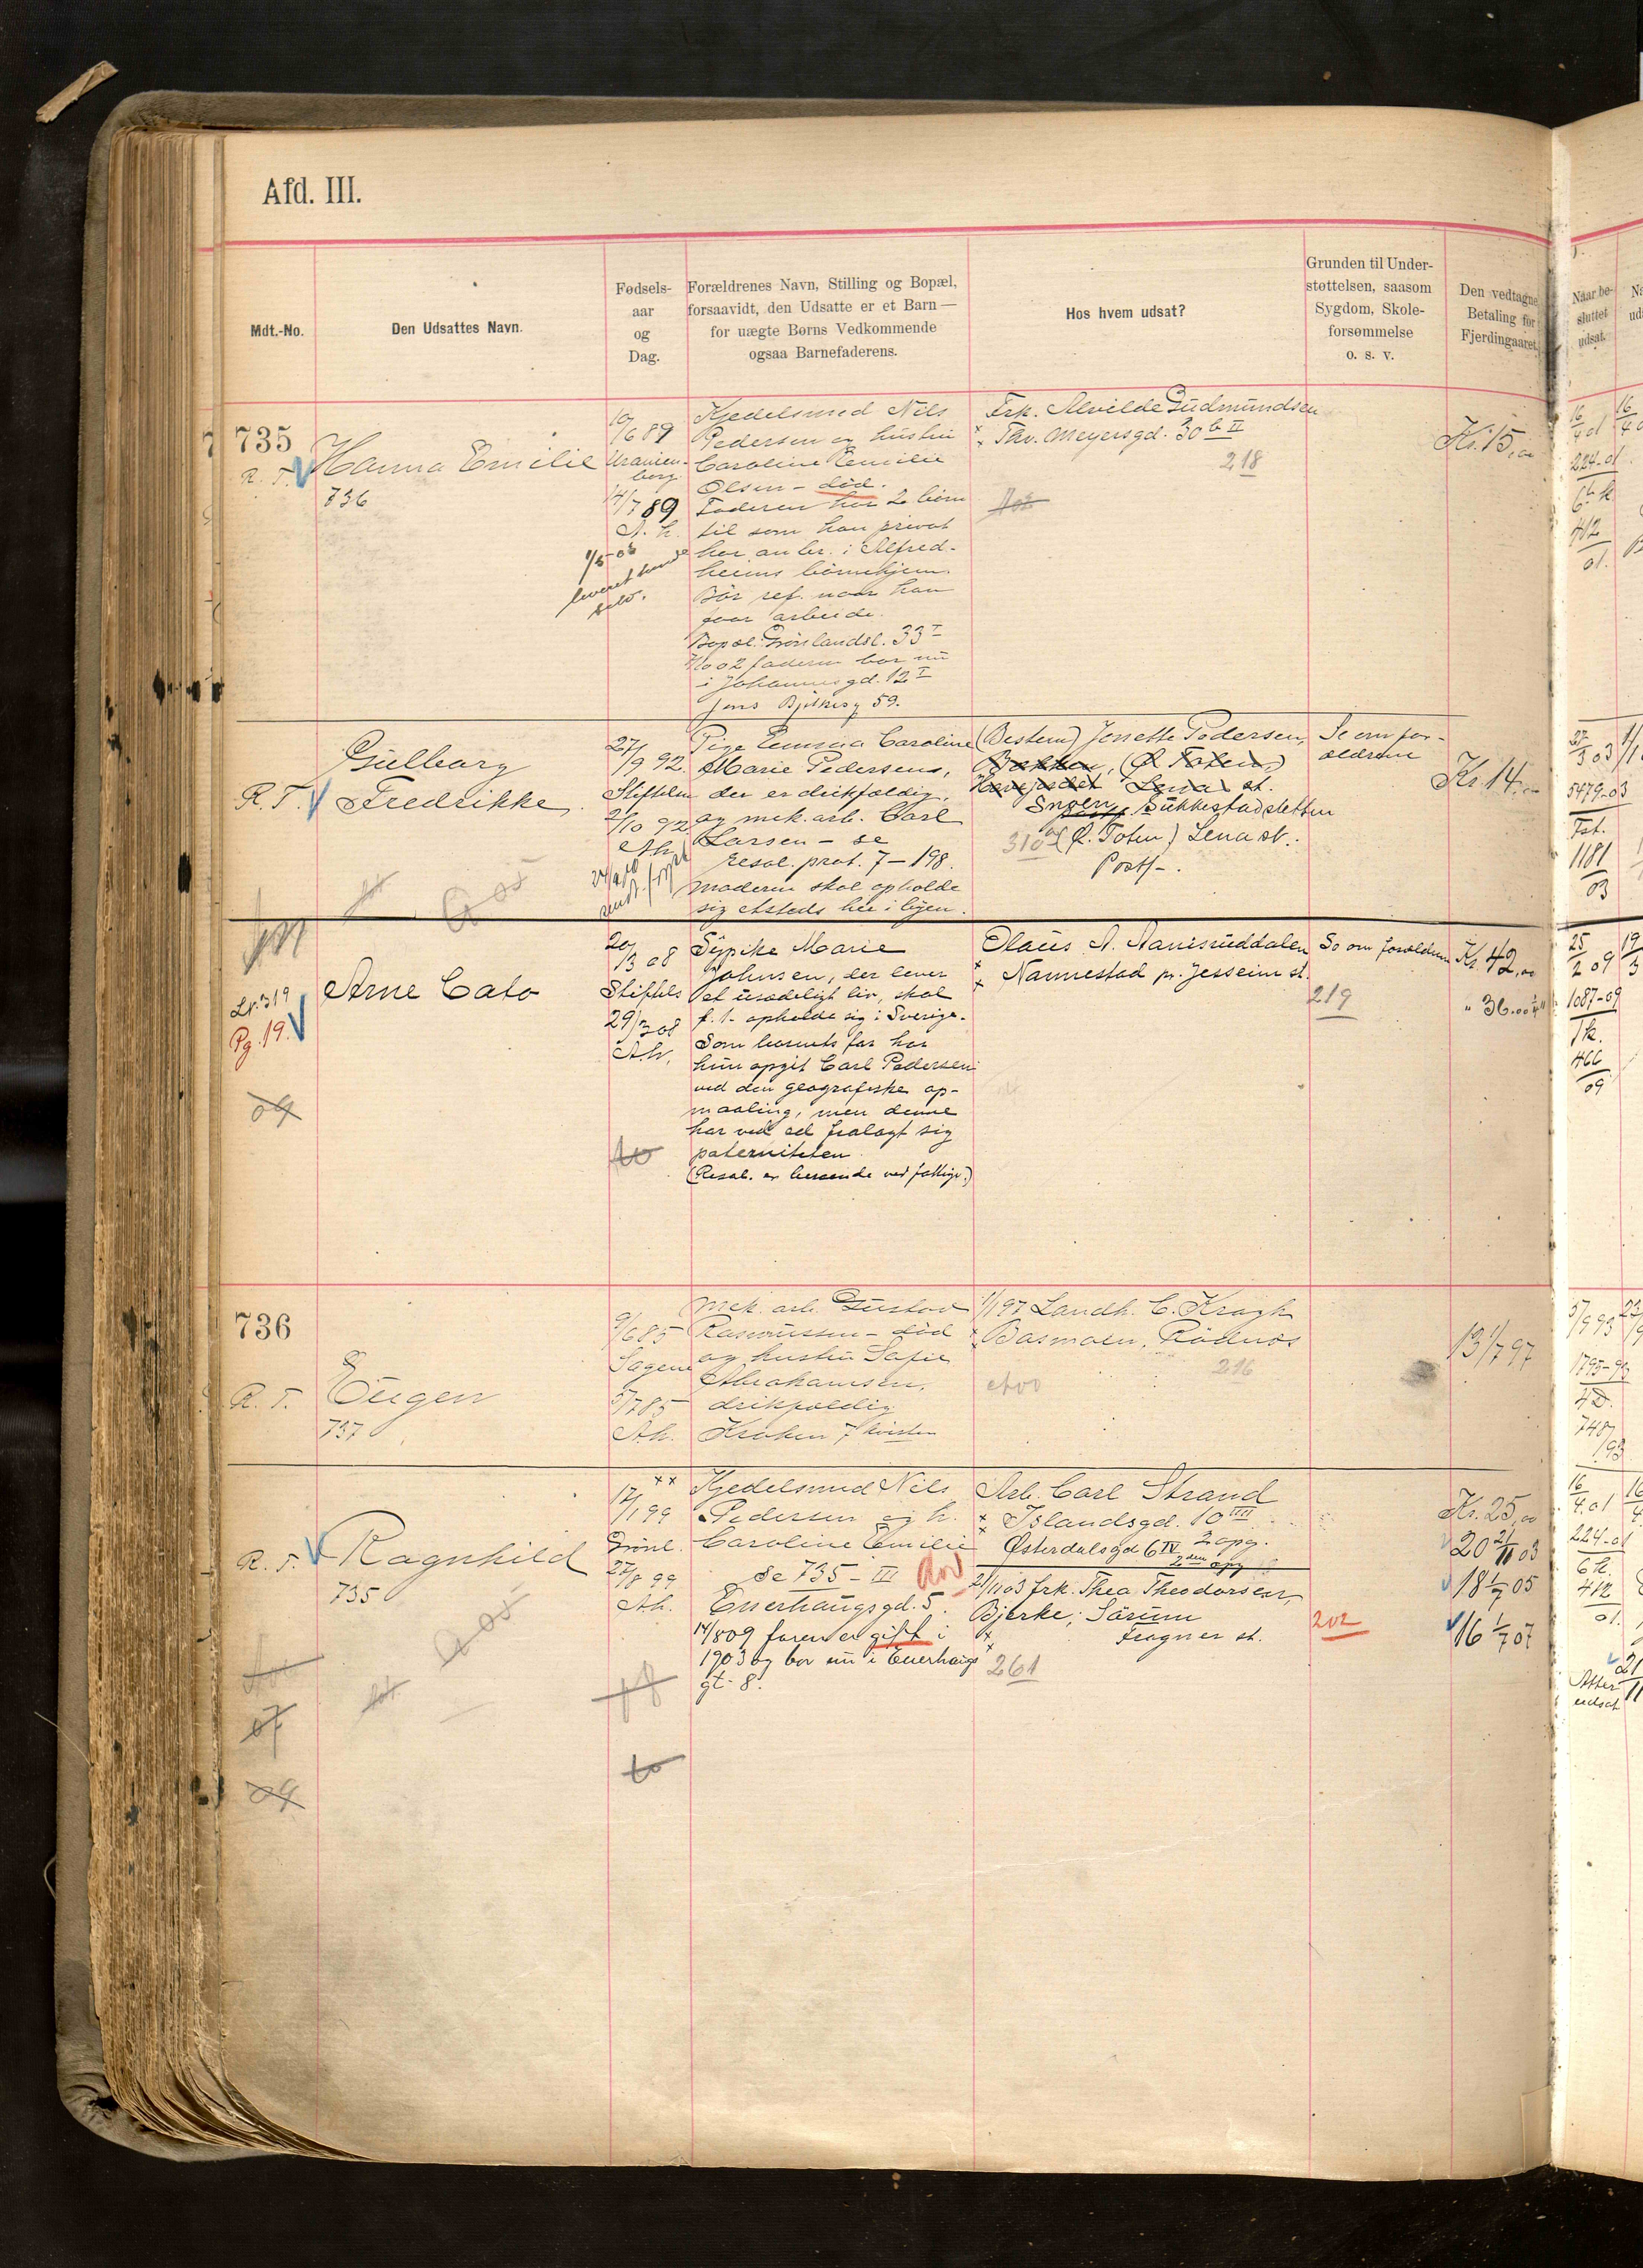 Afd. III.
Mdt.-No.
Den Udsattes Navn.
Fødsels-
aar
og
Dag.
Forældrenes Navn, Stilling og Bopæl,
forsaavidt, den Udsatte er et Barn —
for uægte Børns Vedkommende
ogsaa Barnefaderens.
Hos hvem udsat?
Grunden til Under-
støttelsen, saasom
Sygdom, Skole-
forsømmelse
o. s. v.
Den vedtagne
Betaling for
Fjerdingaaret.
Naar be-
sluttet
udsat.
735
R. T.
Hanna Emilie
736
10/6 89
Uranien-
borg
14/7 89
A. h.
Kjedelsmed Nils
Pedersen og hustru
Caroline Emilie
Olsen - død.
Faderen har 2 börn
til som han privat
har anbr. i Alfred-
heims börnehjem.
Bör ref. naar han
faar arbeide.
Bopæl: Grönlandsl. 33 I
02 faderen bor nu
i Johannesgd. 12 I
Jens Bjelkesg 59.
Frk. Alvilde Gudmundsen
Thv. Meyersgd. 30 b II
218
Kr. 15,00
16/4 01
224-01
6 k
412
01.
R. T.
Gulborg
Fredrikke
27/9 92.
Stiftelsen
2/10 92
A.h.
Pige Emma Caroline
Marie Pedersens,
der er drikfældig,
og mek. arb. Carl
Larsen - se
resol. prot. 7 - 198.
Moderen skal opholde
sig etsteds her i byen.
(Bestem) Jenette Pedersen,
Bakken, (Ø. Toten)
Lena st.
Snoen, Sukkestadsletten
310 (Ø. Toten) Lena st.
Postf-.
Se om for-
ældrene
Kr. 14.-
27/3 03
5479-03
Fst.
1181
03
Lr. 319
Pg. 19.
Arne Cato
09
20/3 08
Stiftels
29/3 08
A.h.
Sypike Marie
Johnsen, der lever
et usædeligt liv, skal
f. t. opholde sig i Sverige.
Som barnets far har
hun opgit Carl Pedersen
ved den geografiske op-
maaling, men denne
har ved ed fralagt sig
paterniteten
(Resol. er beroende ved fattigv.)
Olaus A. Nannestad pr. Jessheim st.
219
Se om forældrene
Kr. 42,00
" 36.00
25/2 09
1087-09
Tk.
466
09
736
R. T.
Eugen
737
9/6 85
Sagene
5/7 85
A.h.
Mek. arb. Gustav
Rasmussen - död
og hustru Sofie
Abrahamsen,
drikfældig
Kroken 7 kvisten
1/1 97 Landh. C. Kragh
Basmoen, Rödenes
216
13 1/7 97
5/9 93
1795-93
4D.
748
193
R. T.
Ragnhild
735
17/1 99
Grönl.
27/8 99
A.h.
Kjedelsmed Nils
Pedersen og h.
Caroline Emilie
Se 735 - III
Enerhaugsgd. 5.
14/8 09 faren er gift i
1903 og bor nu i Enerhaugs
gt. 8.
Arb. Carl Strand
Islandsgd. 10 III
Østerdalsgd 6 IV 2 opg.
2den opg
2/11 03 frk. Thea Theodorsen,
Bjerke, Sörum
Frogner st.
261
202
Kr. 25,00
20 2/11 03
18 1/7 05
16 1/7 07
16/4 01
224-01
6 k.
412
01.
Atter
udsat
07
09